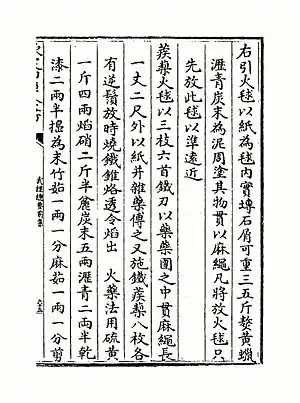 右引火毬以紙為毬內實塼石屑可重三五斤熬黃蠟
瀝青炭末為泥周塗其物貫以麻繩凡將放火毬只
先放此毬以準遠近
蒺蔾火毬以三枝六首鐵刃以藥藥團之中貫麻繩長
一丈二尺外以紙并雜藥傅之又施鐵蒺蔾八枚各
有逆鬚放時燒鐵錐烙透令焰出 火藥法用硫黃
一斤四兩焰硝二斤半麄炭末五兩瀝青二兩半乾
漆二兩半搗為末竹茹一兩一分麻茹一兩一分剪
武經總要前集